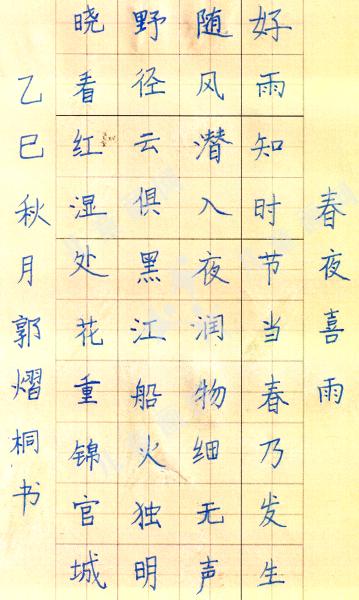 春夜喜雨
好雨知时节当春乃发生
随风潜入夜润物细无声
野径云俱黑江船火独明
晓看红湿处花重锦官城
乙巳秋月郭熠桐书